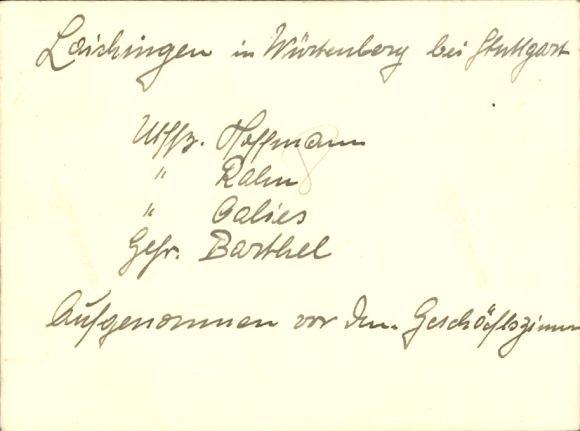 Laichingen in Würtenberg bei Stuttgart
Uffz. Hoffmann
" Rahn
" Galies
Gefr. Barthel
Aufgenommen vor dem Geschäftszimm